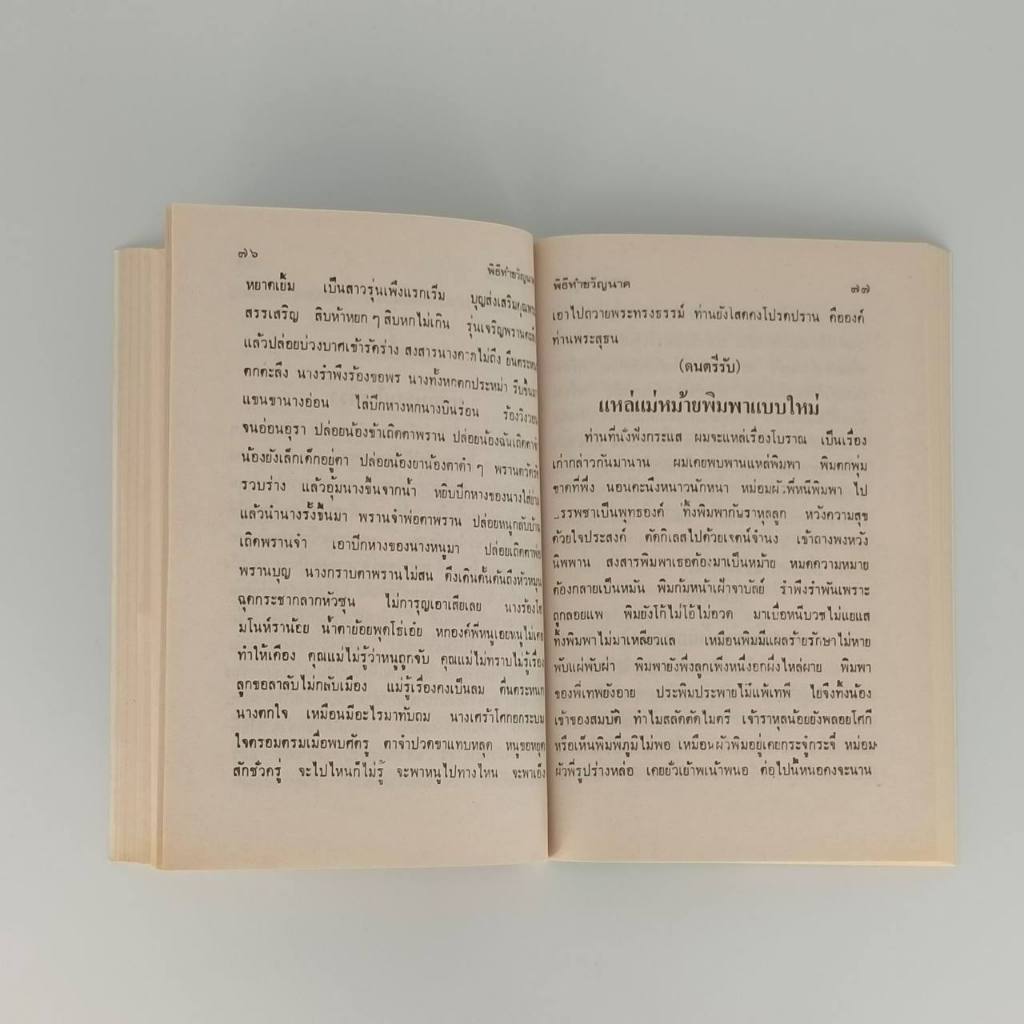 ๗๖
พิธีทำขวัญนาค
หยาดเยิ้ม เป็นสาวรุ่นเพิ่งแรกเริ่ม บุญส่งเสริม
สรรเสริญ สิบห้าหยก ๆ สิบหกไม่เกิน รุ่นเจริญพราน
แล้วปล่อยบ่วงบาศเข้ารัดร่าง สงสารนางคาดไม่ถึง ยืน
ตกตะลึง นางรำพึงร้องขอพร นางทั้งหกตกประหม่า รีบขึ้น
แขนขานางอ่อน ใส่ปีกหางหกนางบินร่อน ร้องวิงวอน
จนอ่อนอุรา ปล่อยน้องข้าเถิดตาพราน ปล่อยน้องฉันเถิดตา
น้องยังเล็กเด็กอยู่ดา ปล่อยน้องยาน้องตาดำ ๆ พราน
รวบร่าง แล้วอุ้มนางขึ้นจากน้ำ หยิบปีกหางของนางใส่
แล้วนำนางรั้งขึ้นมา พรานจำพ่อตาพราน ปล่อยหนูกลับบ้าน
เถิดพรานจำ เอาปีกหางของนางหนูมา ปล่อยเถิดตา
พรานบุญ นางกราบตาพรานไม่สน ดึงเดินดั้นด้นถึงหัว
ฉุดกระชากลากหัวซุน ไม่การุญเอาเสียเลย นางร้อง
มโนห์ราน้อย น้ำตาย้อยพุดโธ่เอ๋ย หกองค์พี่หนูเอยหนูไม่เคย
ทำให้เคือง คุณแม่ไม่รู้ว่าหนูถูกจับ คุณแม่ไม่ทราบไม่รู้เรื่อง
ลูกขอลาลับไม่กลับเมือง แม่รู้เรื่องคงเป็นลม ตื่นตระหนก
นางตกใจ เหมือนมีอะไรมาทับถม นางเศร้าโศกอกระบม
ใจตรอมตรมเมื่อพบศัตรู ตาจำปวดขาแทบหลุด หนูขอหยุด
สักชั่วครู่ จะไปไหนก็ไม่รู้ จะพาหนูไปทางไหน จะพา
พิธีทำขวัญนาค
๗๗
เอาไปถวายพระทรงธรรม์ ท่านยังโสดคงโปรดปราน คือองค์
ท่านพระสุธน
(ดนตรีรับ)
แหล่แม่หม้ายพิมพาแบบใหม่
ท่านที่นั่งฟังกระแส ผมจะแหล่เรื่องโบราณ เป็นเรื่อง
เก่ากล่าวกันมานาน ผมเคยพบพานแหล่พิมพา พิมตกพุ่ม
ขาดที่พึ่ง นอนคะนึงหนาวนักหนา หม่อมผัวพี่หนีพิมพา ไป
บรรพชาเป็นพุทธองค์ ทิ้งพิมพากับราหุลลูก หวังความสุข
ด้วยใจประสงค์ ตัดกิเลสไปด้วยเจตน์จำนง เข้าถางพงหวัง
นิพพาน สงสารพิมพาเธอต้องมาเป็นหม้าย หมดความหมาย
ต้องกลายเป็นหมัน พิมก้มหน้าเฝ้าจาบัลย์ รำพึงรำพันเพราะ
ถูกลอยแพ พิมยังโก้ไม่โอ้ไม่อวด มาเบื่อหนีบวชไม่แยแส
ทิ้งพิมพาไม่มาเหลียวแล เหมือนพิมมีแผลร้ายรักษาไม่หาย
พับแผ่พับผ่า พิมพายังพึ่งลูกเพิ่งหนึ่งอกผึ่งไหล่ผาย พิมพา
ของพี่เทพยังอาย ประพิมประพายไม่แพ้เทพี ไยจึงทิ้งน้อง
เข้าของสมบัติ ทำไมสลัดตัดไมตรี เจ้าราหุลน้อยยังพลอยโศกี
หรือเห็นพิมพี่ภูมิไม่พอ เหมือนผัวพิมอยู่เคยกระจู๋กระจี๋ หม่อม
ผัวพี่รูปร่างหล่อ เคยยั่วเย้าพะเน้าพนอ ต่อไปนี้หนอคงจะนาน